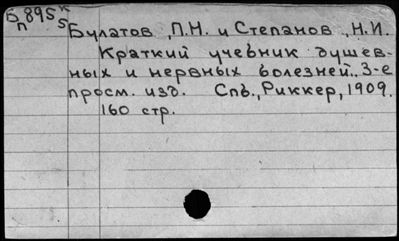 Б 895 к
п 5
Булатов, П.Н. и Степанов, Н.И.
Краткий учебник душев-
ных и нервных болезней. 3-е
просм. изд. Спб., Риккер, 1909.
160 стр.